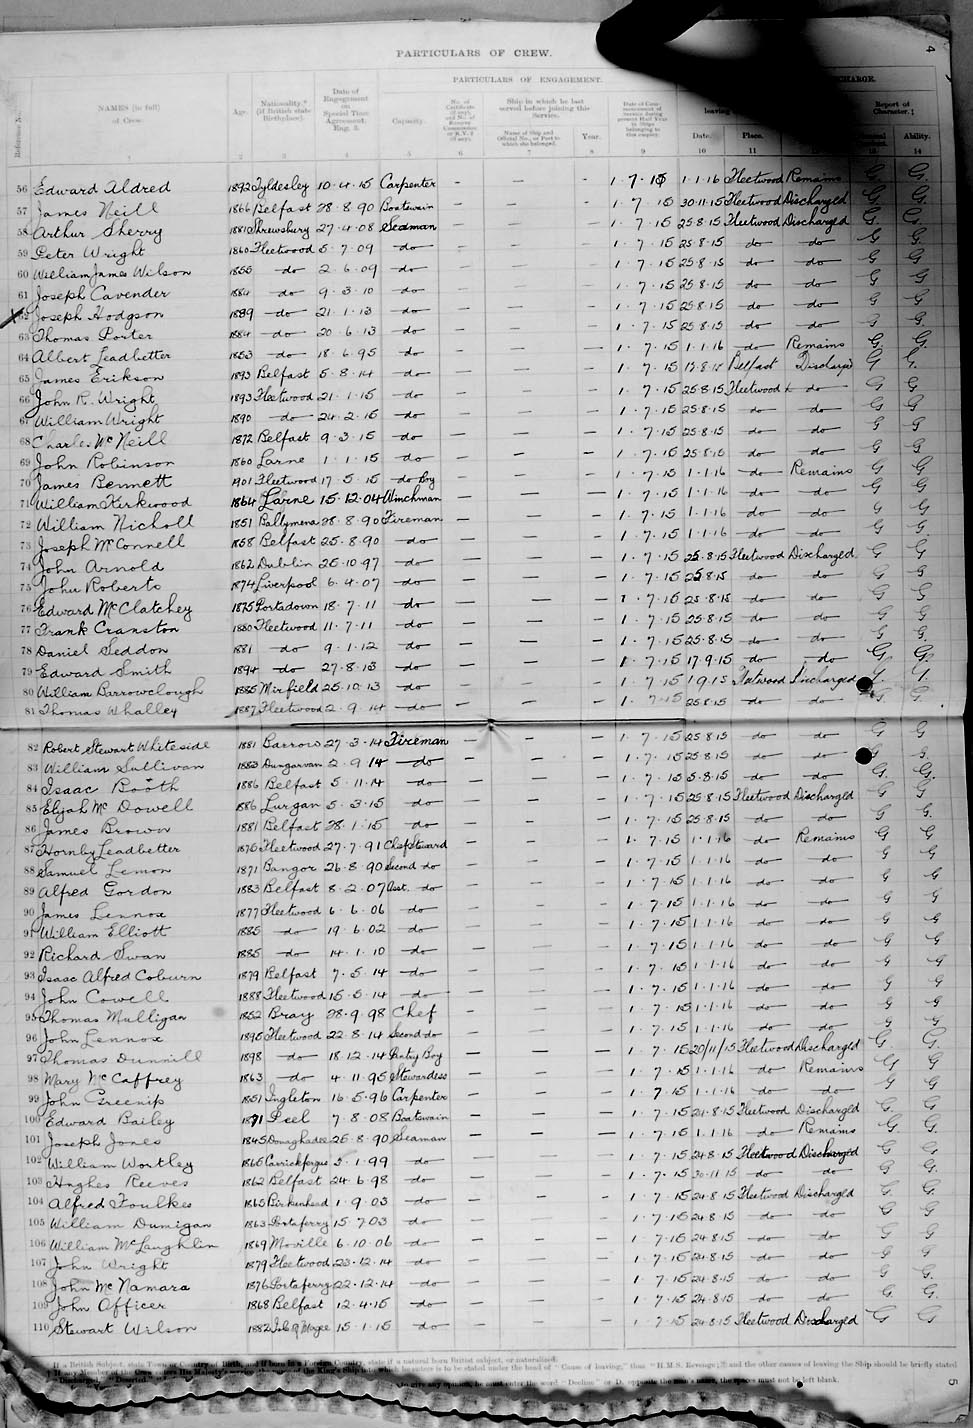 4
PARTICULARS OF CREW.
PARTICULARS OF ENGAGEMENT.
CHARGE.
Reference No.
NAMES (in full) of Crew.
Age.
Nationality.* (if British state Birthplace).
Date of Engagement on Special Time Agreement. Eng. 2.
Capacity.
Ship in which he last served before joining this Service.
Name of Ship and Official No., or Port to which she belonged.
Year.
leaving
Date.
Place.
Report of Character.†
Ability.
1 2 3 4 5 6 7 8 9 10 11 13 14
56 Edward Aldred 1892 Tyldesley 10.4.15 Carpenter – – – 1.7.15 1.1.16 Fleetwood Remains G. G.
57 James Neill 1866 Belfast 28.8.90 Boatswain – – – 1.7.15 30.11.15 Fleetwood Discharged G. G.
58 Arthur Sherry 1881 Shrewsbury 27.4.08 Seaman – – – 1.7.15 25.8.15 Fleetwood Discharged G. G.
59 Peter Wright 1860 Fleetwood 5.7.09 do – – – 1.7.15 25.8.15 do do G G
60 William James Wilson 1855 do 2.6.09 do – – – 1.7.15 25.8.15 do do G G
61 Joseph Cavender 1884 do 9.3.10 do – – – 1.7.15 25.8.15 do do G G
62 Joseph Hodgson 1889 do 21.1.13 do – – – 1.7.15 25.8.15 do do G G
63 Thomas Porter 1884 do 20.6.13 do – – – 1.7.15 25.8.15 do do G G
64 Albert Leadbetter 1853 do 18.6.95 do – – – 1.7.15 1.1.16 do Remains G. G
65 James Erikson 1893 Belfast 5.8.14 do – – – 1.7.15 Belfast Discharged G G.
66 John R. Wright 1893 Fleetwood 21.1.15 do – – – 1.7.15 25.8.15 Fleetwood do G G
67 William Wright 1890 do 24.2.15 do – – – 1.7.15 25.8.15 do do G G
68 Charles McNeill 1872 Belfast 9.3.15 do – – – 1.7.15 25.8.15 do do G G
69 John Robinson 1860 Larne 1.1.15 do – – – 1.7.15 25.8.15 do do G G
70 James Bennett 1901 Fleetwood 17.5.15 do Boy – – – 1.7.15 1.1.16 do Remains G G
71 William Kirkwood 1864 Larne 15.12.04 Winchman – – – 1.7.15 1.1.16 do do G G
72 William Nicholl 1851 Ballymena 28.8.90 Fireman – – – 1.7.15 1.1.16 do do G G
73 Joseph McConnell 1858 Belfast 25.8.90 do – – – 1.7.15 1.1.16 do do G G
74 John Arnold 1862 Dublin 25.10.97 do – – – 1.7.15 25.8.15 Fleetwood Discharged G G
75 John Roberts 1874 Liverpool 6.4.07 do – – – 1.7.15 25.8.15 do do G G
76 Edward McClatchey 1875 Portadown 18.7.11 do – – – 1.7.15 25.8.15 do do G G
77 Frank Cranston 1880 Fleetwood 11.7.11 do – – – 1.7.15 25.8.15 do do G G
78 Daniel Seddon 1881 do 9.1.12 do – – – 1.7.15 25.8.15 do do G G.
79 Edward Smith 1894 do 27.8.13 do – – – 1.7.15 17.9.15 do do G. G.
80 William Barrowclough 1885 Mirfield 25.10.13 do – – – 1.7.15 Fleetwood Discharged G. G.
81 Thomas Whalley 1887 Fleetwood 2.9.14 do 1.7.15 25.8.15 do do G. G.
82 Robert Stewart Whiteside 1881 Barrow 27.3.14 Fireman – – – 1.7.15 25.8.15 do do G G
83 William Sullivan 1883 Dungarvan 2.9.14 do – – – 1.7.15 25.8.15 do do G G.
84 Isaac Booth 1886 Belfast 5.11.14 do – – – 1.7.15 5.8.15 do do G. G.
85 Elijah McDowell 1886 Lurgan 5.3.15 do – – – 1.7.15 25.8.15 Fleetwood Discharged G G
86 James Brown 1881 Belfast 28.1.15 do – – – 1.7.15 25.8.15 do do G G.
87 Hornby Leadbetter 1875 Fleetwood 27.7.91 Chef Steward – – – 1.7.15 1.1.16 do Remains G G
88 Samuel Lemon 1871 Bangor 26.8.90 Second do – – – 1.7.15 1.1.16 do do G G
89 Alfred Gordon 1883 Belfast 8.2.07 Asst. do – – – 1.7.15 1.1.16 do do G G
90 James Lennox 1877 Fleetwood 6.6.06 do – – – 1.7.15 1.1.16 do do G G
91 William Elliott 1885 do 19.6.02 do – – – 1.7.15 1.1.16 do do G G
92 Richard Swan 1885 do 14.1.10 do – – – 1.7.15 1.1.16 do do G G
93 Isaac Alfred Coburn 1879 Belfast 7.5.14 do – – – 1.7.15 1.1.16 do do G G
94 John Cowell 1888 Fleetwood 15.5.14 do – – – 1.7.15 1.1.16 do do G G
95 Thomas Mulligan 1852 Bray 28.9.98 Chef – – – 1.7.15 1.1.16 do do G G
96 John Lennox 1895 Fleetwood 22.8.14 Second do – – – 1.7.15 1.1.16 do do G G
97 Thomas Dunnill 1898 do 18.12.14 Pantry Boy – – – 1.7.15 20/11/15 Fleetwood Discharged G. G.
98 Mary McCaffrey 1863 do 4.11.95 Stewardess – – – 1.7.15 1.1.16 do Remains G G
99 John Greenip 1851 Ingleton 16.5.96 Carpenter – – – 1.7.15 1.1.16 do do G G
100 Edward Bailey 1871 Peel 7.8.08 Boatswain – – – 1.7.15 24.8.15 Fleetwood Discharged G. G
101 Joseph Jones 1845 Donaghadee 25.8.90 Seaman – – – 1.7.15 1.1.16 do Remains G. G.
102 William Wortley 1865 Carrickfergus 5.1.99 do – – – 1.7.15 24.8.15 Fleetwood Discharged G G
103 Hughes Reeves 1862 Belfast 24.6.98 do – – – 1.7.15 30.11.15 do do G G.
104 Alfred Foulkes 1865 Birkenhead 1.9.03 do – – – 1.7.15 24.8.15 Fleetwood Discharged G. G.
105 William Dumigan 1863 Portaferry 15.7.03 do – – – 1.7.15 24.8.15 do do G G
106 William McLaughlin 1869 Moville 6.10.06 do – – – 1.7.15 24.8.15 do do G G
107 John Wright 1879 Fleetwood 23.12.14 do – – – 1.7.15 24.8.15 do do G G
108 John McNamara 1876 Portaferry 22.12.14 do – – – 1.7.15 24.8.15 do do G G.
109 John Officer 1868 Belfast 12.4.15 do – – – 1.7.15 24.8.15 do do G. G.
110 Stewart Wilson 1882 Isle of Magee 15.1.15 do – – – 1.7.15 24.8.15 Fleetwood Discharged G G
If a British Subject, state Town or Country of Birth, and if born in a Foreign Country, state if a natural born British subject, or naturalized.
5